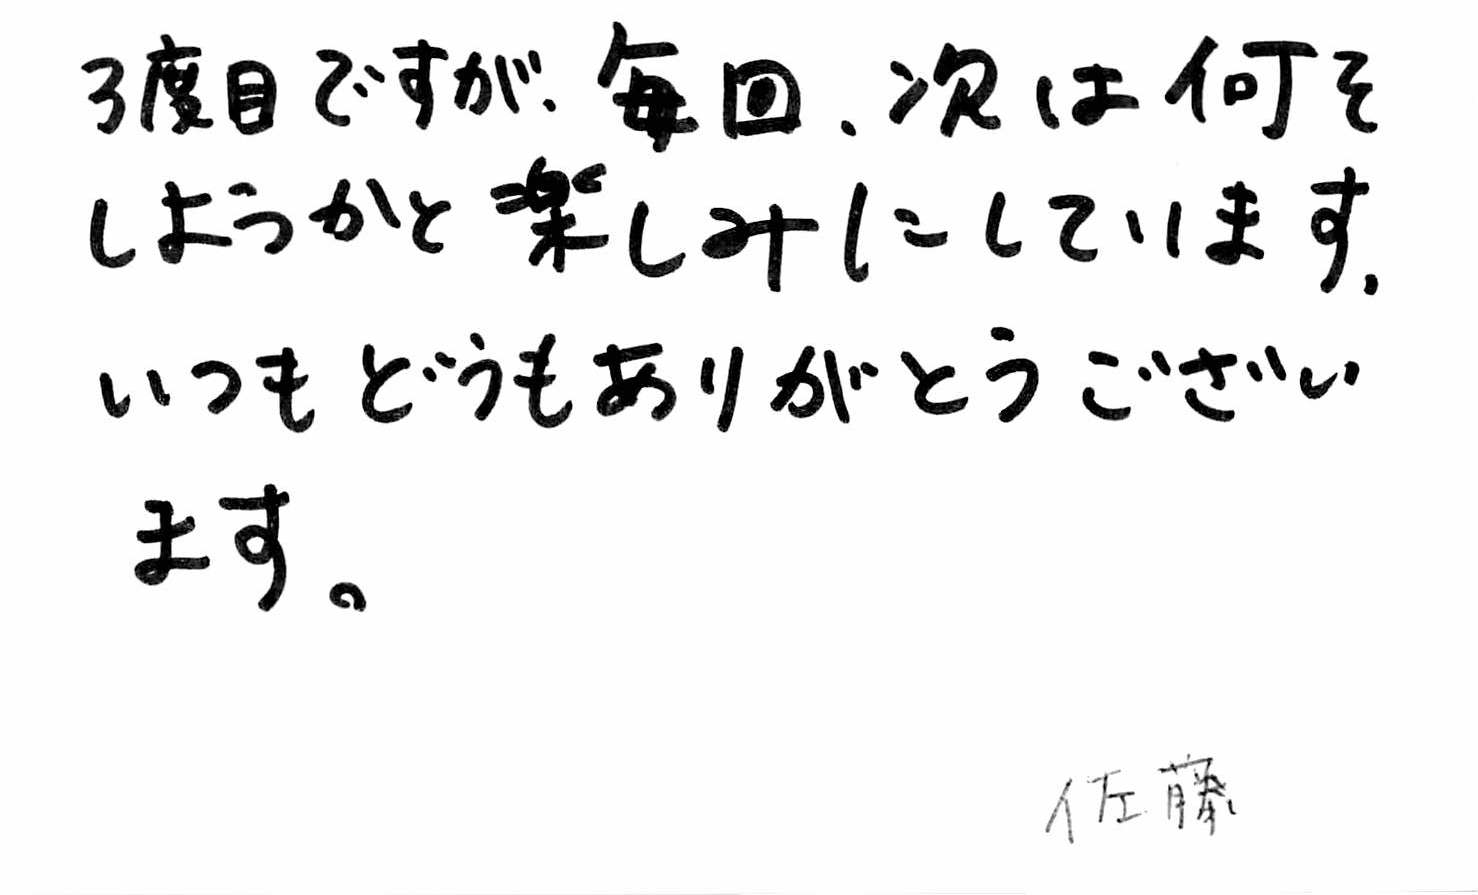 3度目ですが、毎回、次は何そ
しようかと楽しみにしています、
いつもどうもありがとうござい
ます。
佐藤